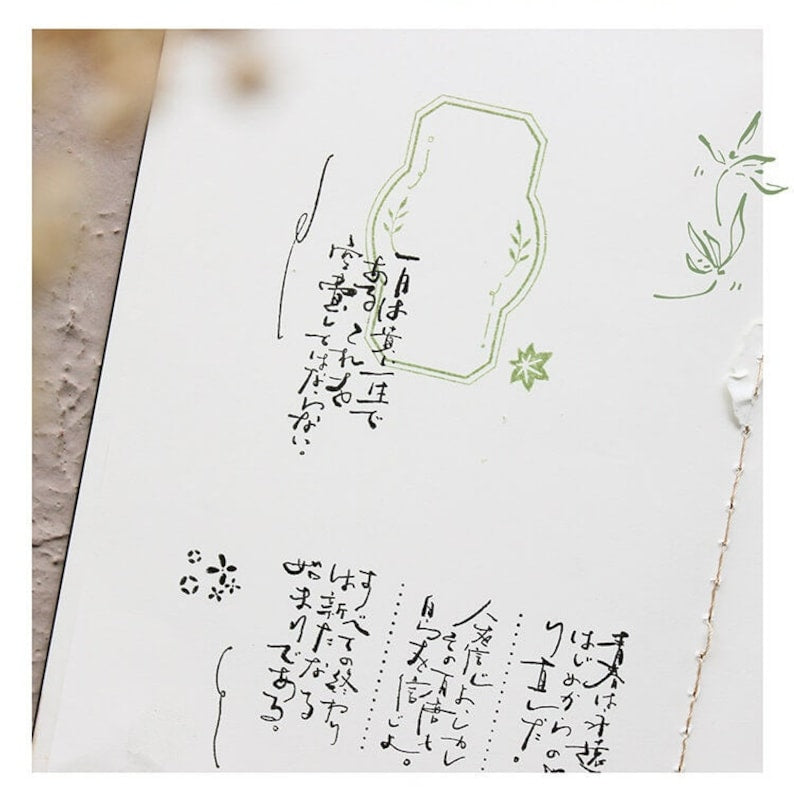 一日は貴い一生で
ある これを
空費してはならない。
青春は永遠
はじめからの
り直しだ。
人を信じよしかし
その百倍も
自らを信じよ。
すべての終わり
は新たなる
始まりである。